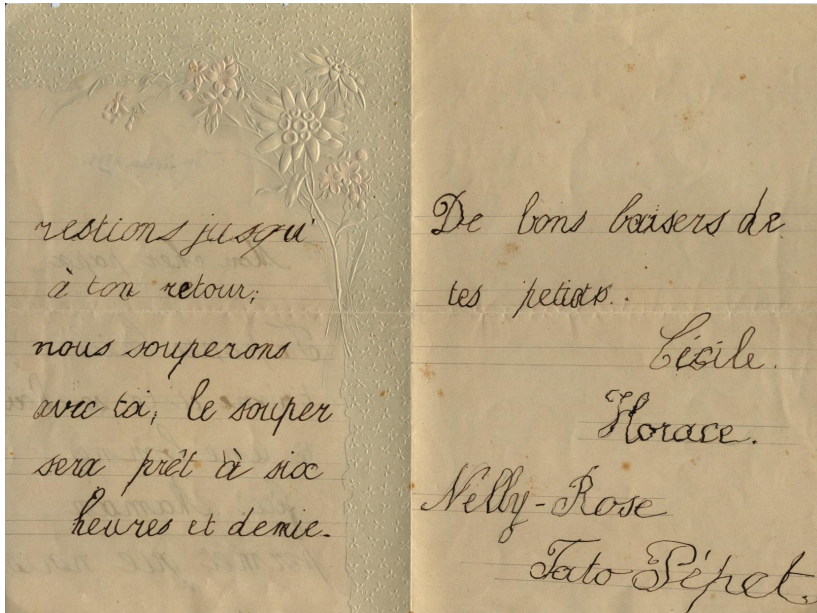 restions jusqu'
à ton retour;
nous souperons
avec toi, le souper
sera prêt à six
heures et demie.
De bons baisers de
tes petiots.
Cécile.
Horace.
Nelly-Rose
Tato Pépet.